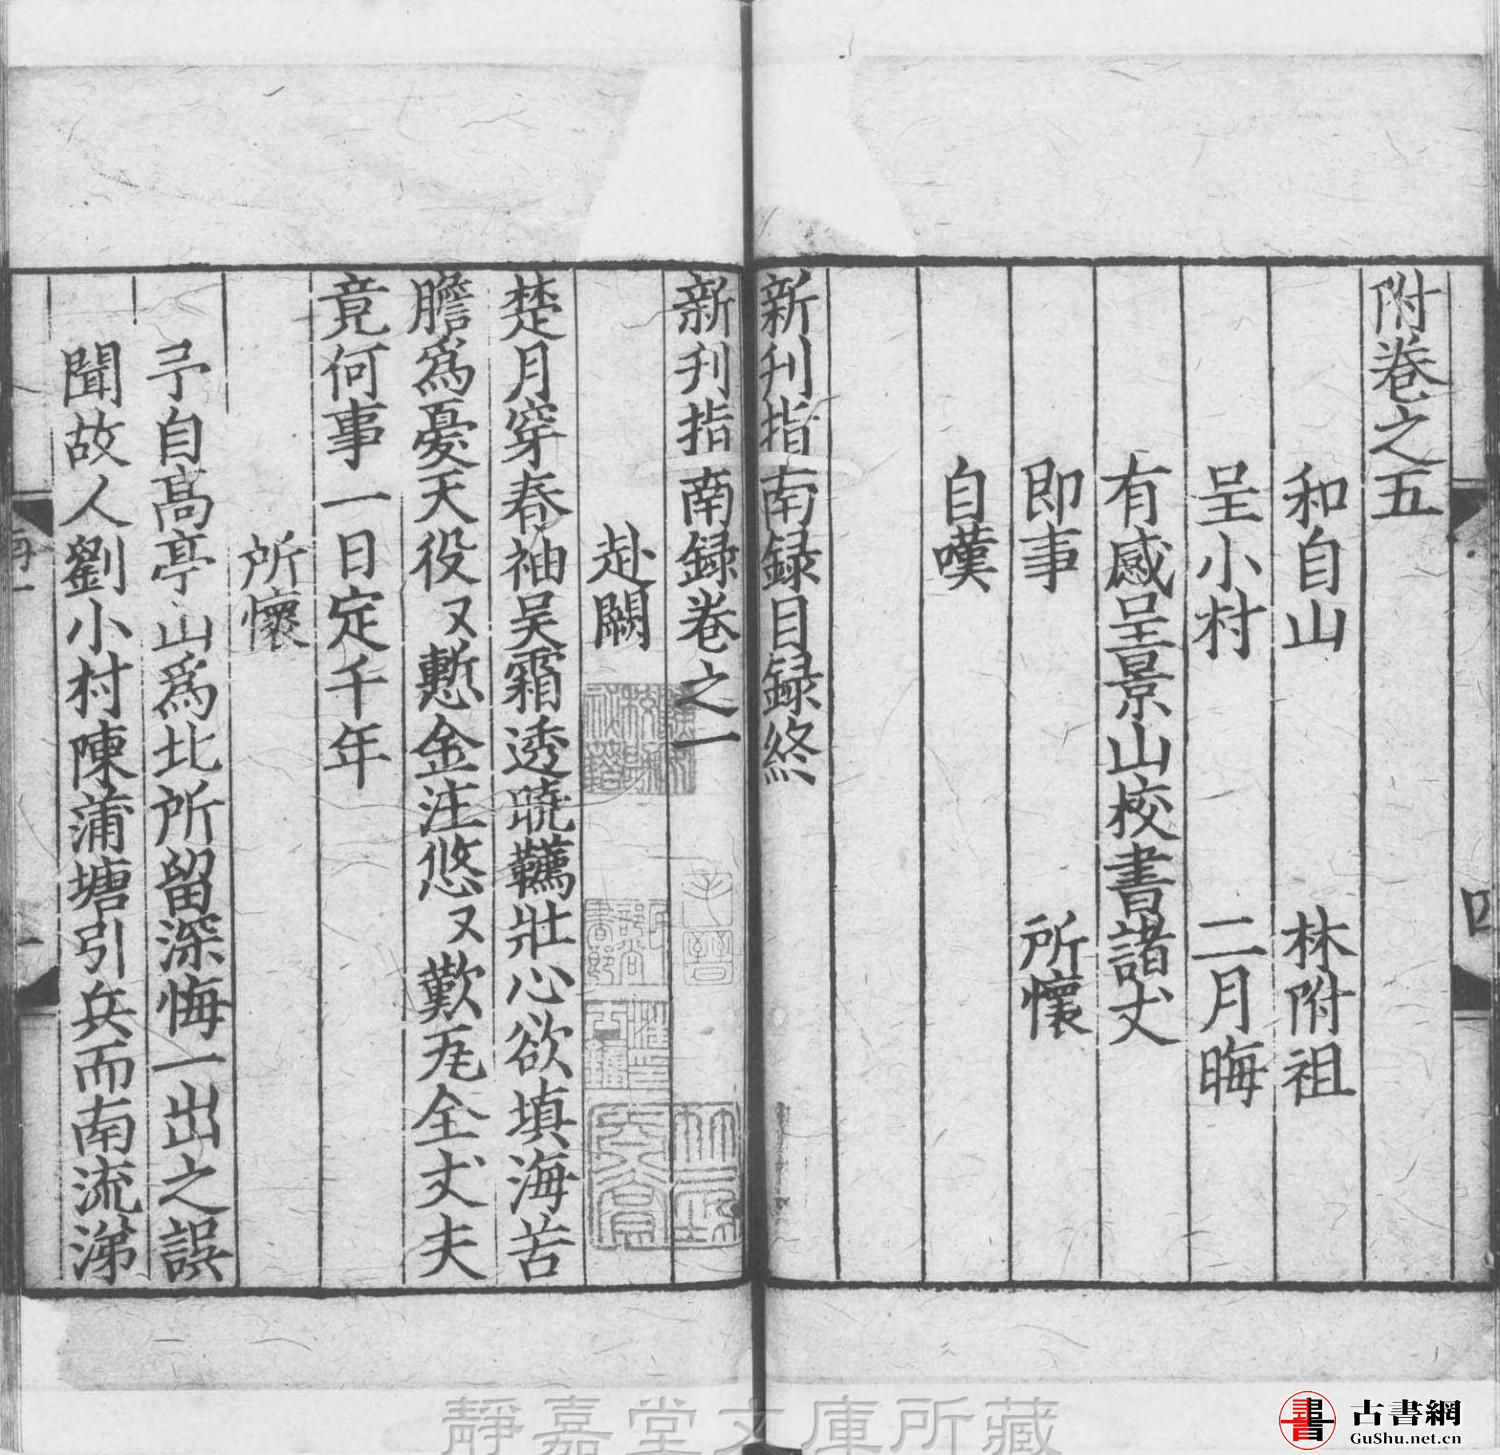 附卷之五
和自山　林附祖
呈小村　二月晦
有感呈景山校書諸丈
即事　所懷
自嘆
新刋指南録目録終
四
新刋指南録卷之一
赴闕
楚月穿春袖吴霜透曉韉壯心欲填海苦
膽爲憂天役又慙金注悠又歎瓦全丈夫
竟何事一日定千年
所懷
予自高亭山爲北所留深悔一出之誤
聞故人劉小村陳蒲塘引兵而南流涕
一
子晉
靜嘉堂文庫所藏
書
古書網
GuShu.net.cn